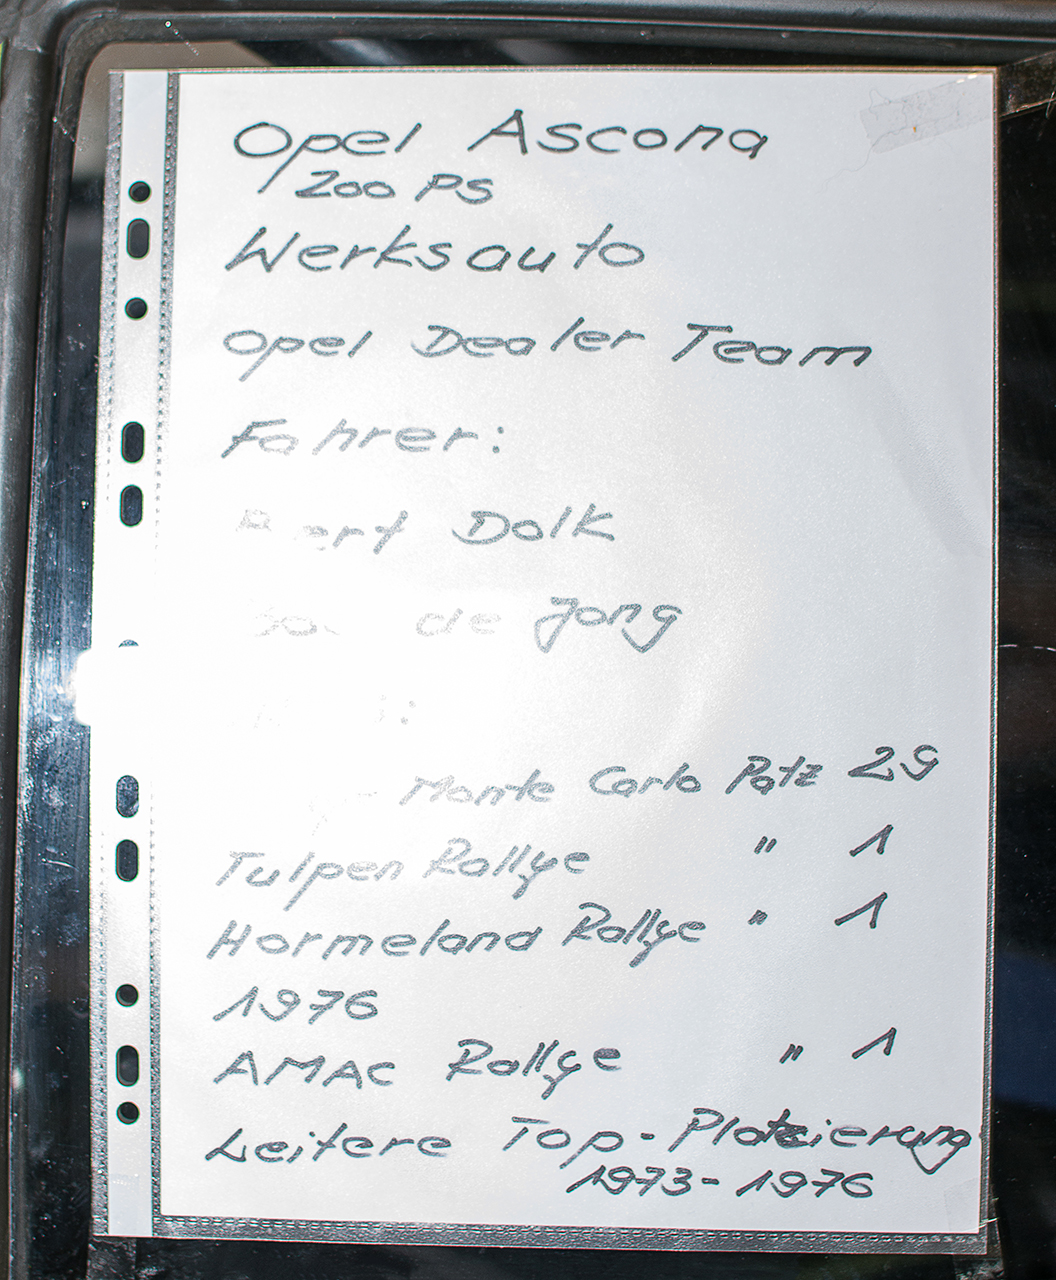 Opel Ascona
200 PS
Werksauto
Opel Dealer Team
Fahrer:
Dolk
de Jong
Monte Carlo Patz 29
Tulpen Rallye " 1
Hormeland Rallye " 1
1976
AMAC Rallye " 1
Leitere Top-Platzierung
1973-1976